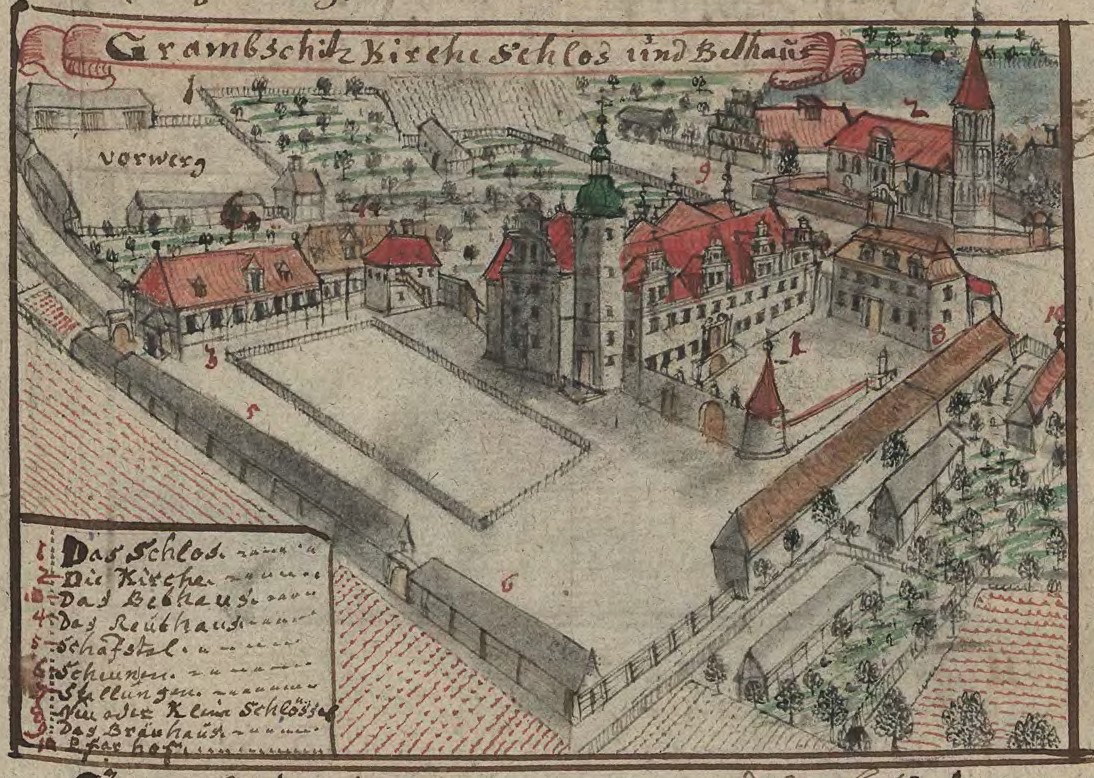 Grambschitz Kirche Schlos und Bethaus
1
2
vorwerg
9
4
10
3
1
8
5
6
1 Das Schlos
2 Die Kirche
3 Das Bethaus
4 Das Reuthaus
5 Schafstal
6 Scheunen
7 Stallungen
8 Neu oder Klein Schlössel
9 Das Brauhaus
10 Pfar hof